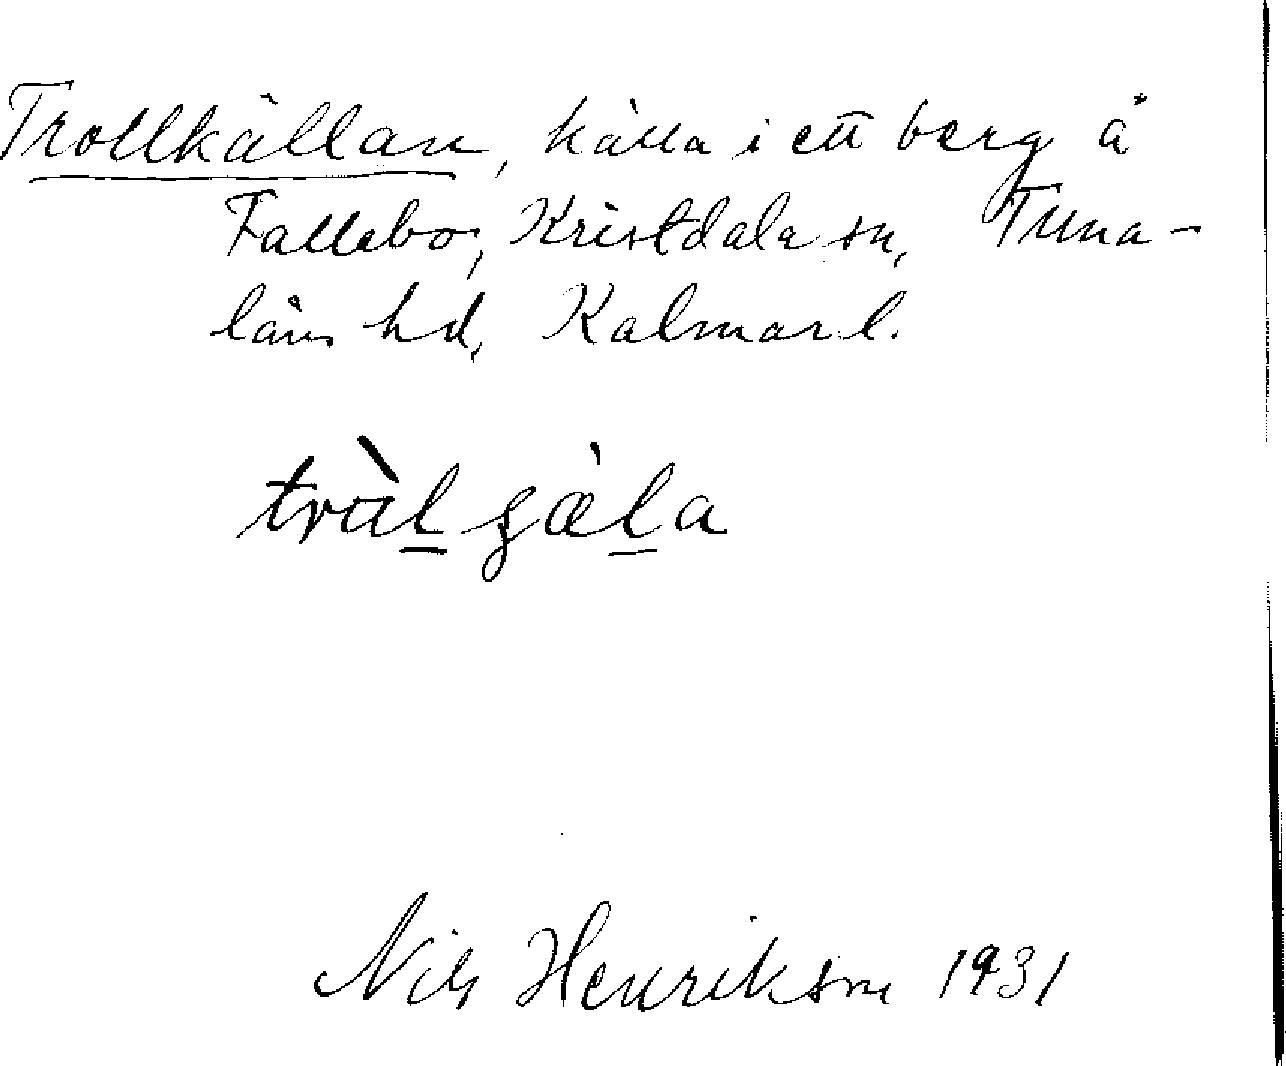 Trollkällan, källa i ett berg å
Fallebo, Kristdala sn, Tuna-
läns hd, Kalmar l.
Nils Henrikson 1931